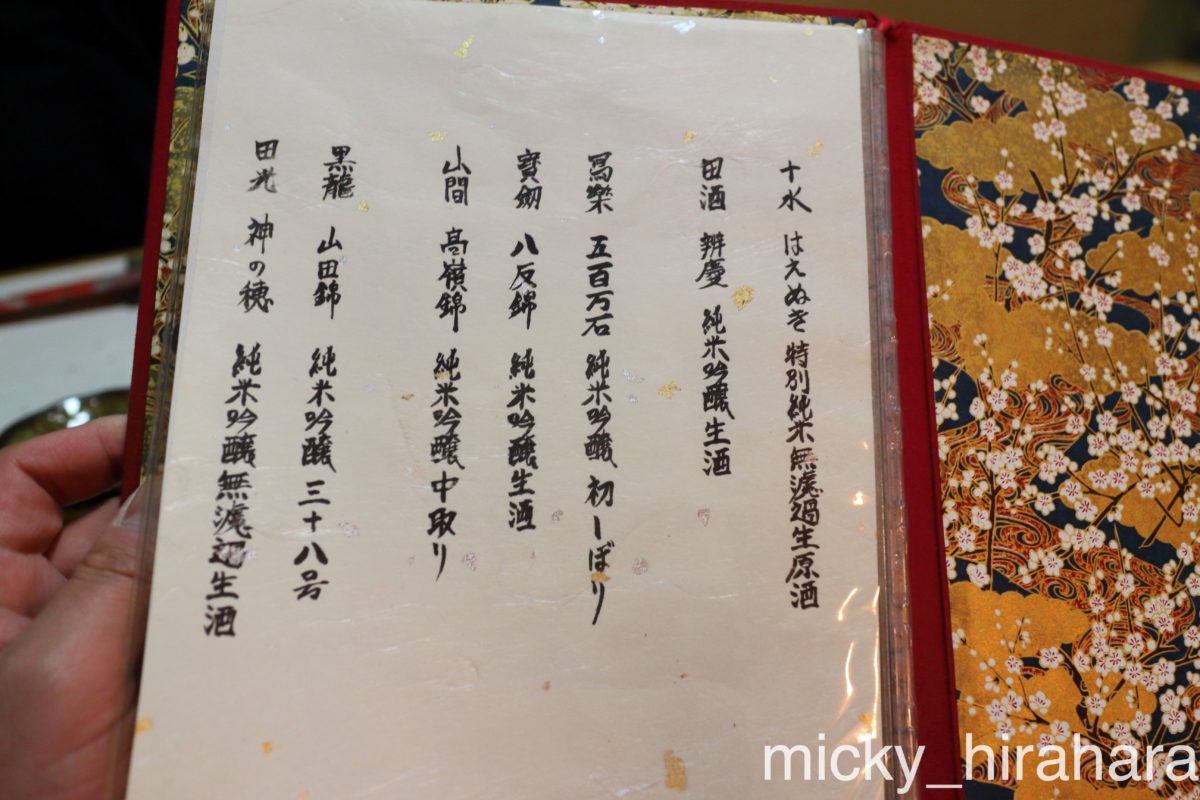 十水 はえぬき 特別純米無濾過生原酒
田酒 辨慶 純米吟醸生酒
冩樂 五百万石 純米吟醸 初しぼり
寳剱 八反錦 純米吟醸生酒
山間 高嶺錦 純米吟醸中取り
黒龍 山田錦 純米吟醸 三十八号
田光 神の穂 純米吟醸無濾過生酒
micky_hirahara